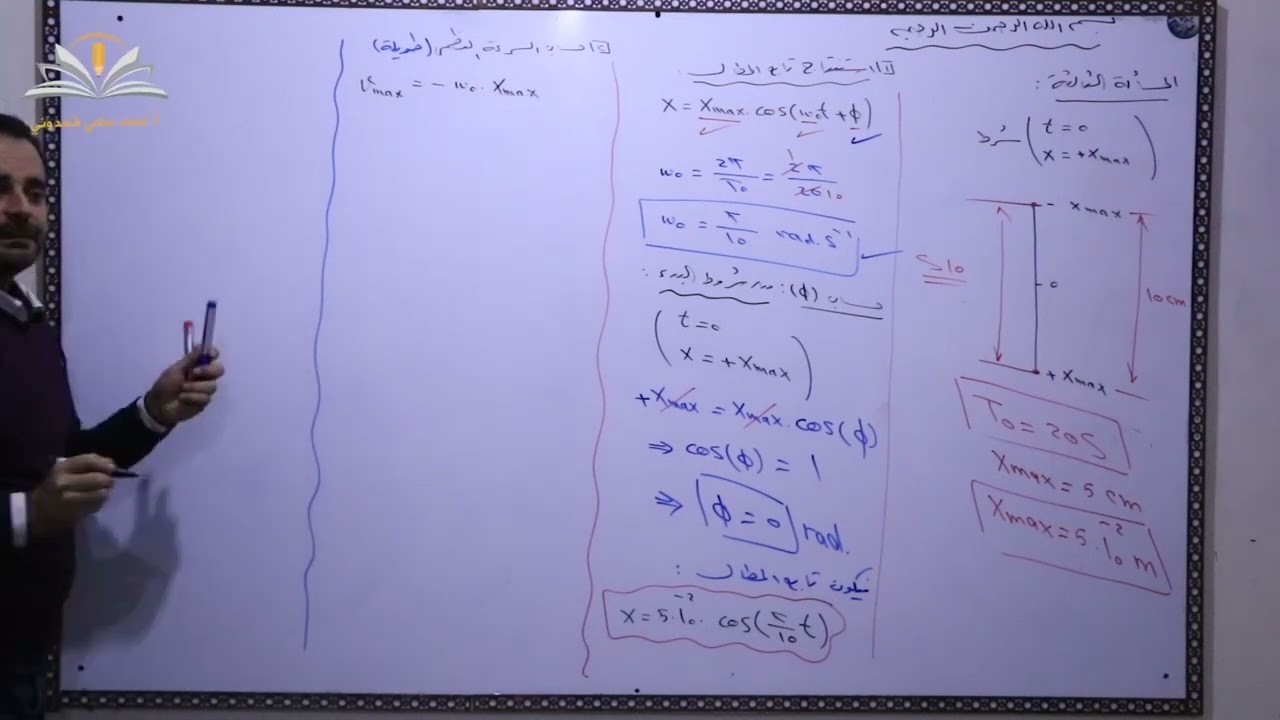 بسم الله الرحمن الرحيم
المسألة الثالثة :
شرط
t = 0
x = + Xmax
- Xmax
0
+ Xmax
10 cm
T0 = 20 S
Xmax = 5 cm
Xmax = 5.10⁻² m
1 استنتاج تابع المطال :
X = Xmax . cos(ω0t + ϕ)
ω0 = 2π/T0 = 2π/20 10
1
ω0 = π/10 rad.s⁻¹
حساب (ϕ): من شروط البدء :
t = 0
X = + Xmax
+ Xmax = Xmax . cos(ϕ)
⇒ cos(ϕ) = 1
⇒ ϕ = 0 rad.
فيكون تابع المطال :
X = 5.10⁻² . cos(π/10 t)
2 حساب السرعة العظمى (طويلة)
Vmax = - ω0 . Xmax